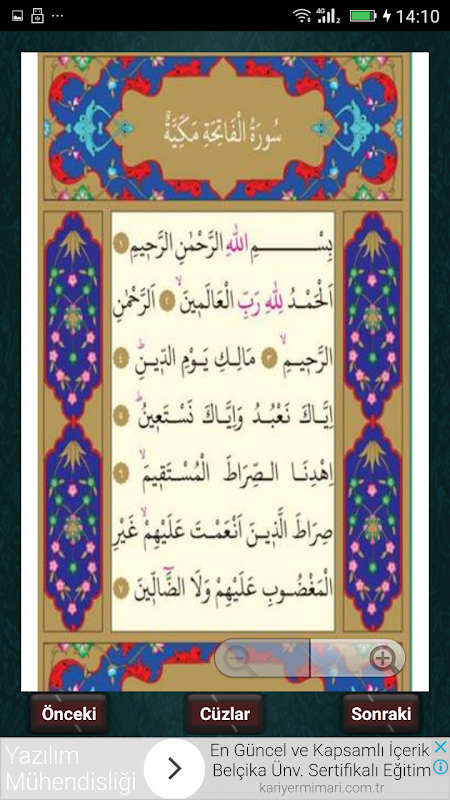 4G 2 14:10
سُورَةُ الْفَاتِحَةِ مَكِّيَّةٌ
بِسْمِ اللّٰهِ الرَّحْمٰنِ الرَّحٖيمِ ١
اَلْحَمْدُ لِلّٰهِ رَبِّ الْعَالَمٖينَۙ ٢ اَلرَّحْمٰنِ
الرَّحٖيمِۙ ٣ مَالِكِ يَوْمِ الدّٖينِؕ ٤
اِيَّاكَ نَعْبُدُ وَاِيَّاكَ نَسْتَعٖينُؕ ٥
اِهْدِنَا الصِّرَاطَ الْمُسْتَقٖيمَۙ ٦
صِرَاطَ الَّذٖينَ اَنْعَمْتَ عَلَيْهِمْۙ غَيْرِ
الْمَغْضُوبِ عَلَيْهِمْ وَلَا الضَّٓالّٖينَ ٧
Önceki
Cüzlar
Sonraki
Yazılım
Mühendisliği
En Güncel ve Kapsamlı İçerik
Belçika Ünv. Sertifikalı Eğitim
kariyermimari.com.tr